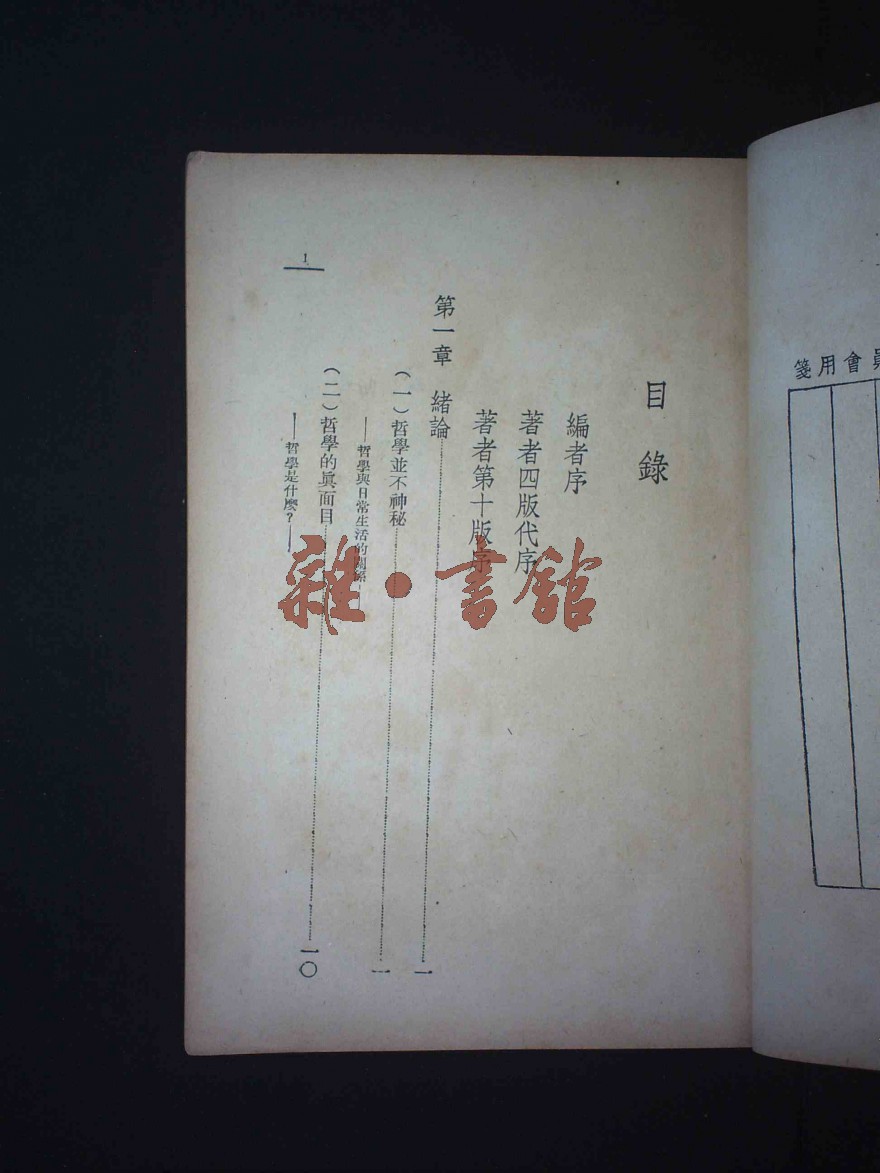 目錄
編者序
著者四版代序
著者第十版序
第一章 緒論……一
(一)哲學並不神秘……一
——哲學與日常生活的關係——
(二)哲學的眞面目……一〇
——哲學是什麼?——
1
會用箋
雜·書館